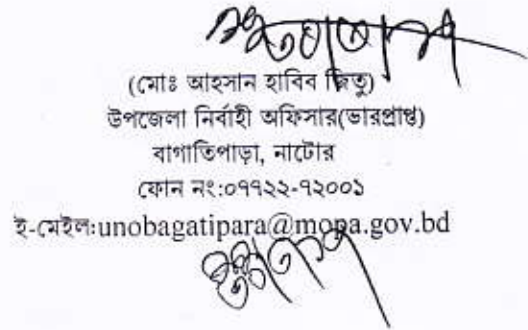 (মোঃ আহসান হাবিব জিতু)
উপজেলা নির্বাহী অফিসার(ভারপ্রাপ্ত)
বাগাতিপাড়া, নাটোর
ফোন নং:০৭৭২২-৭২০০১
ই-মেইলঃunobagatipara@mopa.gov.bd